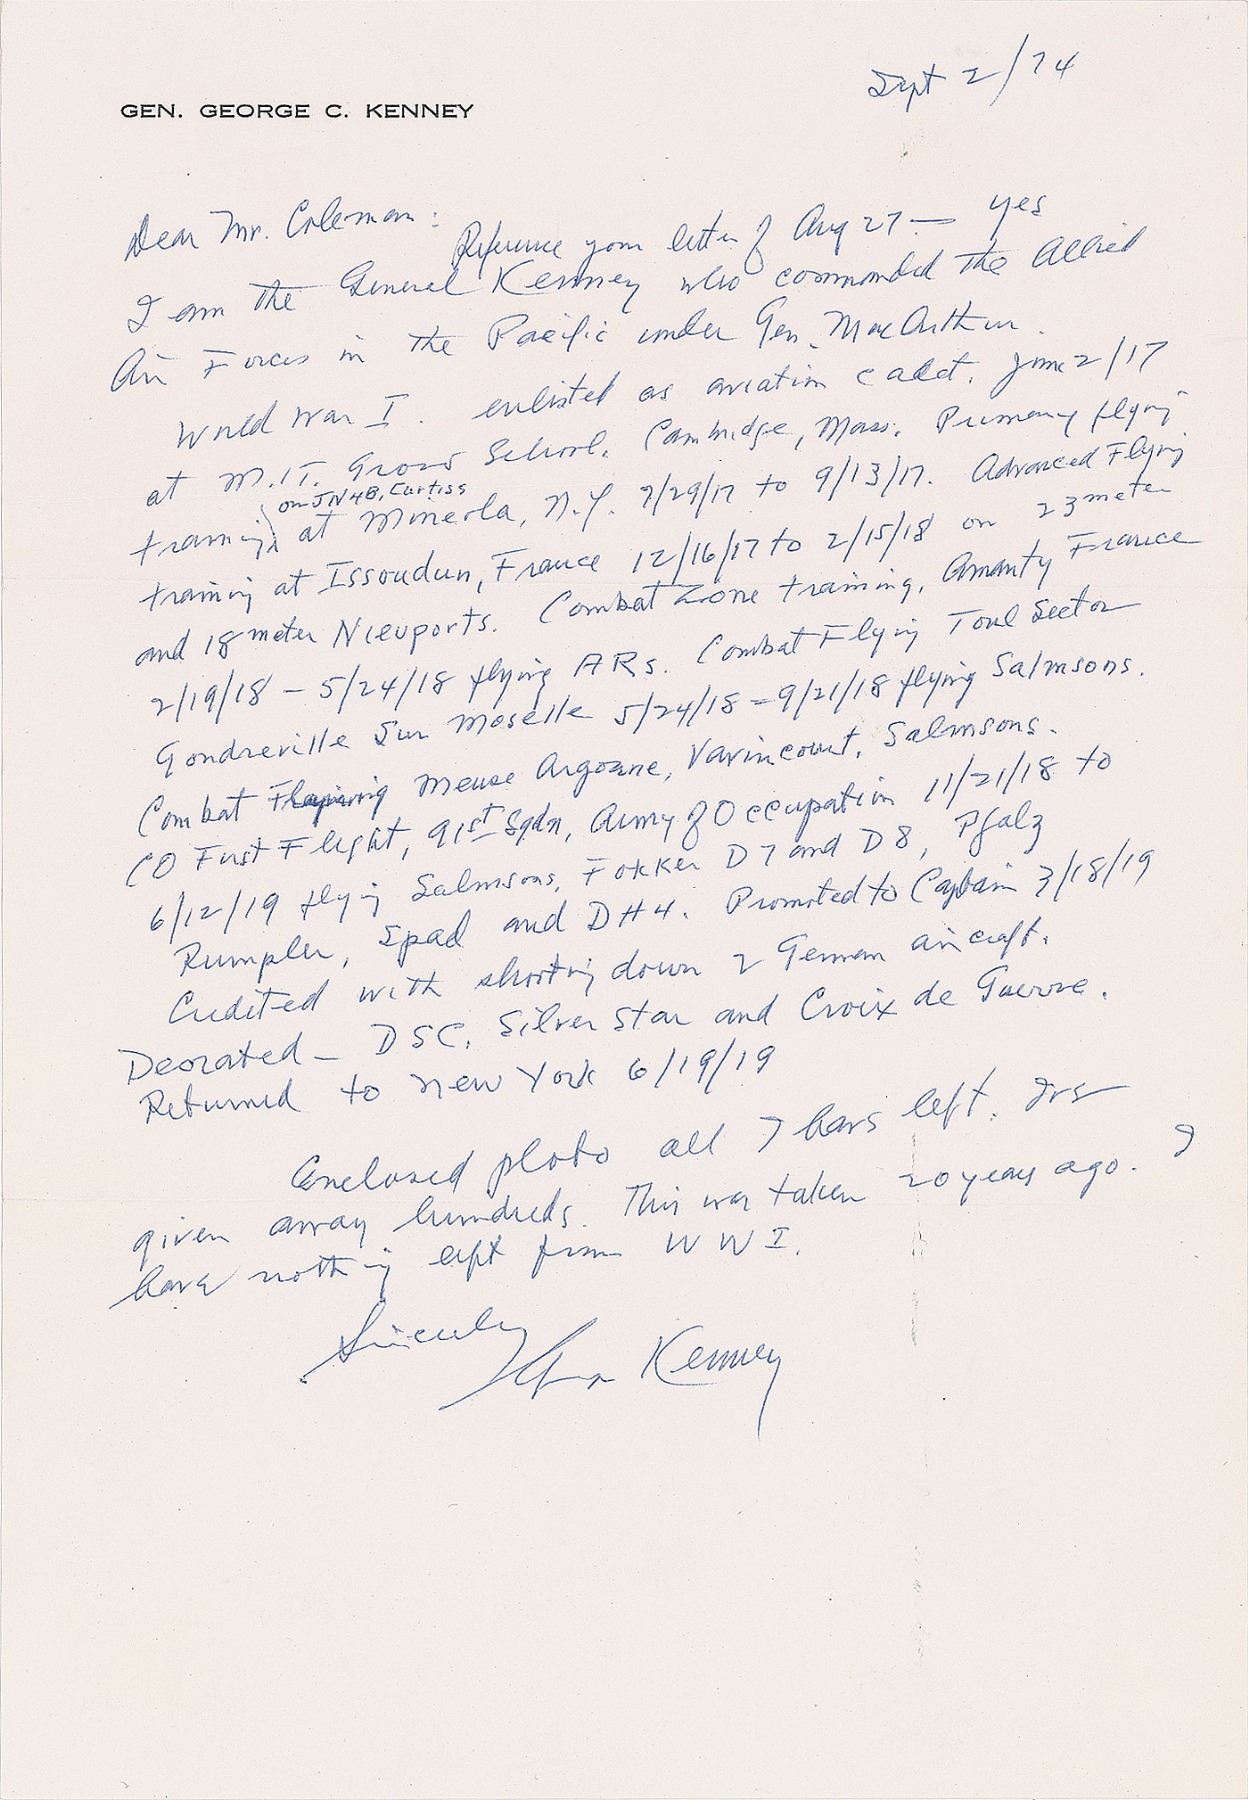 Sept 2/74
GEN. GEORGE C. KENNEY
Dear Mr. Coleman:
Reference your letter of Aug 27 — yes
I am the General Kenney who commanded the Allied
Air Forces in the Pacific under Gen. MacArthur.
World War I. enlisted as aviation cadet. June 2/17
at M.I.T. Ground School. Cambridge, Mass. Primary flying
on JN4B, Curtiss
training at Mineola, N.Y. 7/29/17 to 9/13/17. Advanced Flying
training at Issoudun, France 12/16/17 to 2/15/18 on 23 meter
and 18 meter Nieuports. Combat Zone training, Amanty France
2/19/18 - 5/24/18 flying ARs. Combat Flying Toul Sector
Gondreville Sur Moselle 5/24/18 - 9/21/18 flying Salmsons.
Combat Meuse Argonne, Vavincourt. Salmsons.
CO First Flight, 91st Sqdn, Army of Occupation 11/21/18 to
6/12/19 flying Salmsons, Fokker D7 and D8, Pfalz
Rumpler, Spad and DH4. Promoted to Captain 3/18/19
Credited with shooting down 2 German aircraft.
Deorated — DSC, Silver Star and Croix de Guerre.
Returned to New York 6/19/19
Enclosed photo all I have left.
given away hundreds. This was taken 20 years ago. I
have nothing left from WWI.
Sincerely
Kenney